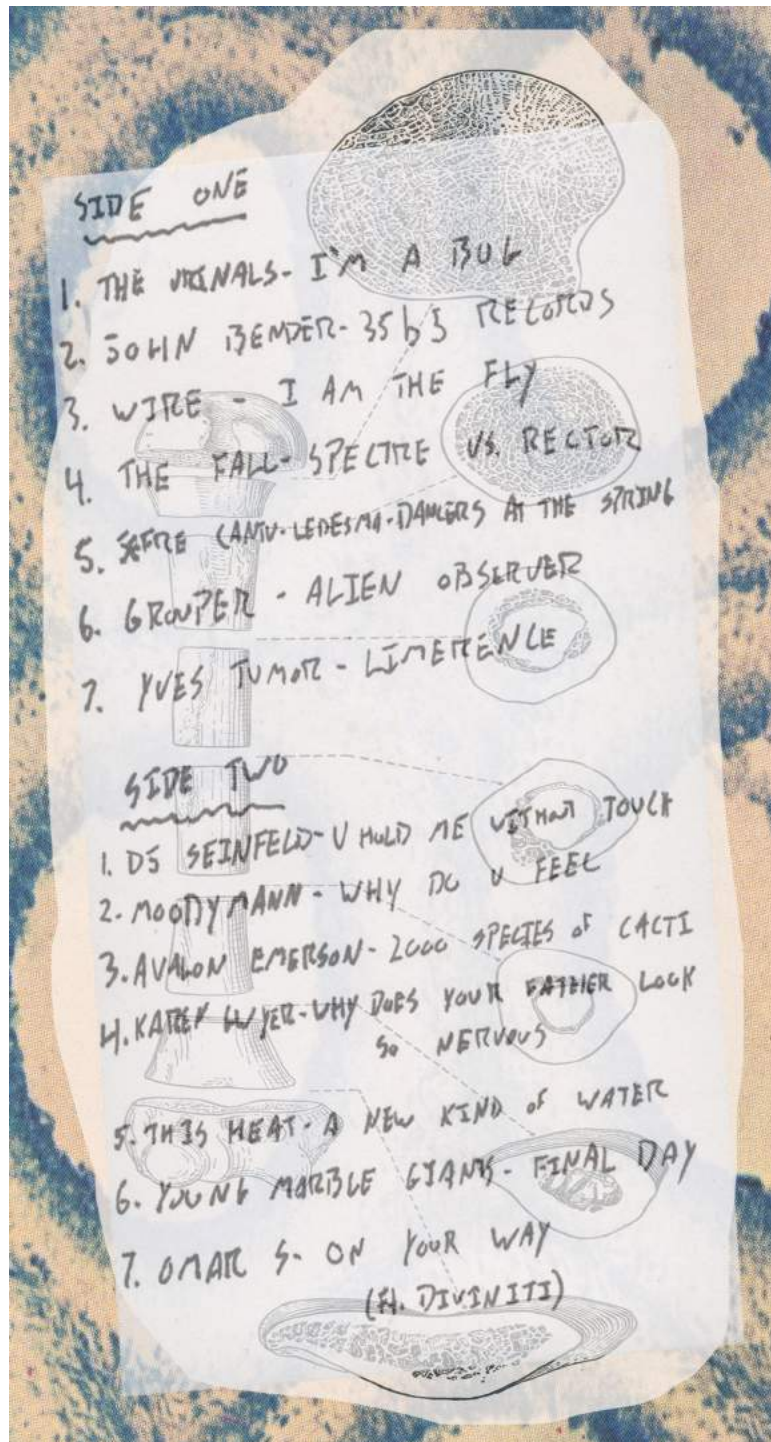 SIDE ONE
1. THE URINALS- I'M A BUG
2. JOHN BENDER- 35b3 RECORDS
3. WIRE - I AM THE FLY
4. THE FALL- SPECTRE VS. RECTOR
5. JEFRE CANTU-LEDESMA-DANCERS AT THE SPRING
6. GROUPER - ALIEN OBSERVER
7. YVES TUMOR - LIMERENCE
SIDE TWO
1. DJ SEINFELD-U HOLD ME WITHOUT TOUCH
2. MOODYMANN - WHY DO U FEEL
3. AVALON EMERSON- 2000 SPECIES OF CACTI
4. KAREN GWYER-WHY DOES YOUR FATHER LOOK
SO NERVOUS
5. THIS HEAT- A NEW KIND OF WATER
6. YOUNG MARBLE GIANTS- FINAL DAY
7. OMAR S- ON YOUR WAY
(Ft. DIVINITI)